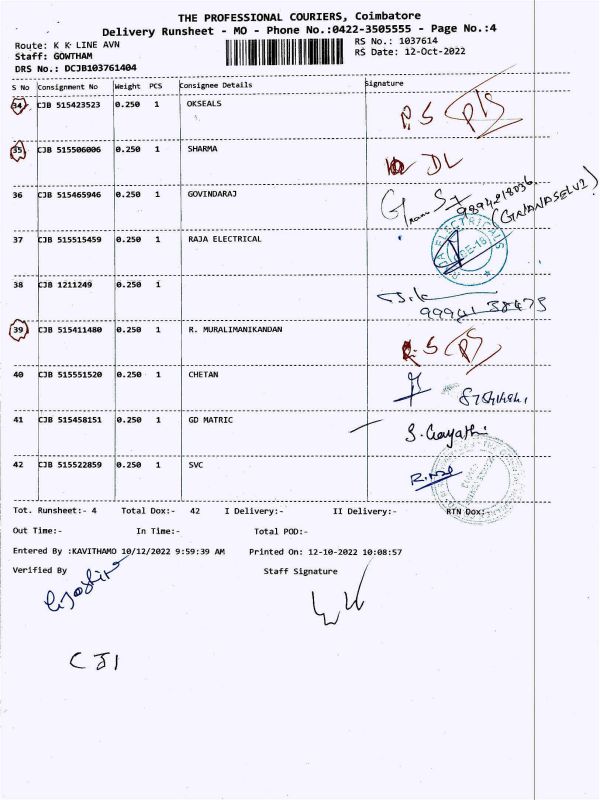 THE PROFESSIONAL COURIERS, Coimbatore
Delivery Runsheet - MO - Phone No.:0422-3505555 - Page No.:4
Route: K K LINE AVN
RS No.: 1037614
Staff: GOWTHAM
RS Date: 12-Oct-2022
DRS No.: DCJB103761404
S No Consignment No Weight PCS Consignee Details Signature
34 CJB 515423523 0.250 1 OKSEALS R.S
35 CJB 515506006 0.250 1 SHARMA DL
36 CJB 515465946 0.250 1 GOVINDARAJ
(GNANASELVI)
37 CJB 515515459 0.250 1 RAJA ELECTRICAL
38 CJB 1211249 0.250 1
39 CJB 515411480 0.250 1 R. MURALIMANIKANDAN R.S
40 CJB 515551520 0.250 1 CHETAN
41 CJB 515458151 0.250 1 GD MATRIC S. Gayathri
42 CJB 515522859 0.250 1 SVC
Tot. Runsheet:- 4 Total Dox:- 42 I Delivery:- II Delivery:- RTN Dox:-
Out Time:- In Time:- Total POD:-
Entered By :KAVITHAMO 10/12/2022 9:59:39 AM Printed On: 12-10-2022 10:08:57
Verified By Staff Signature
CJ1